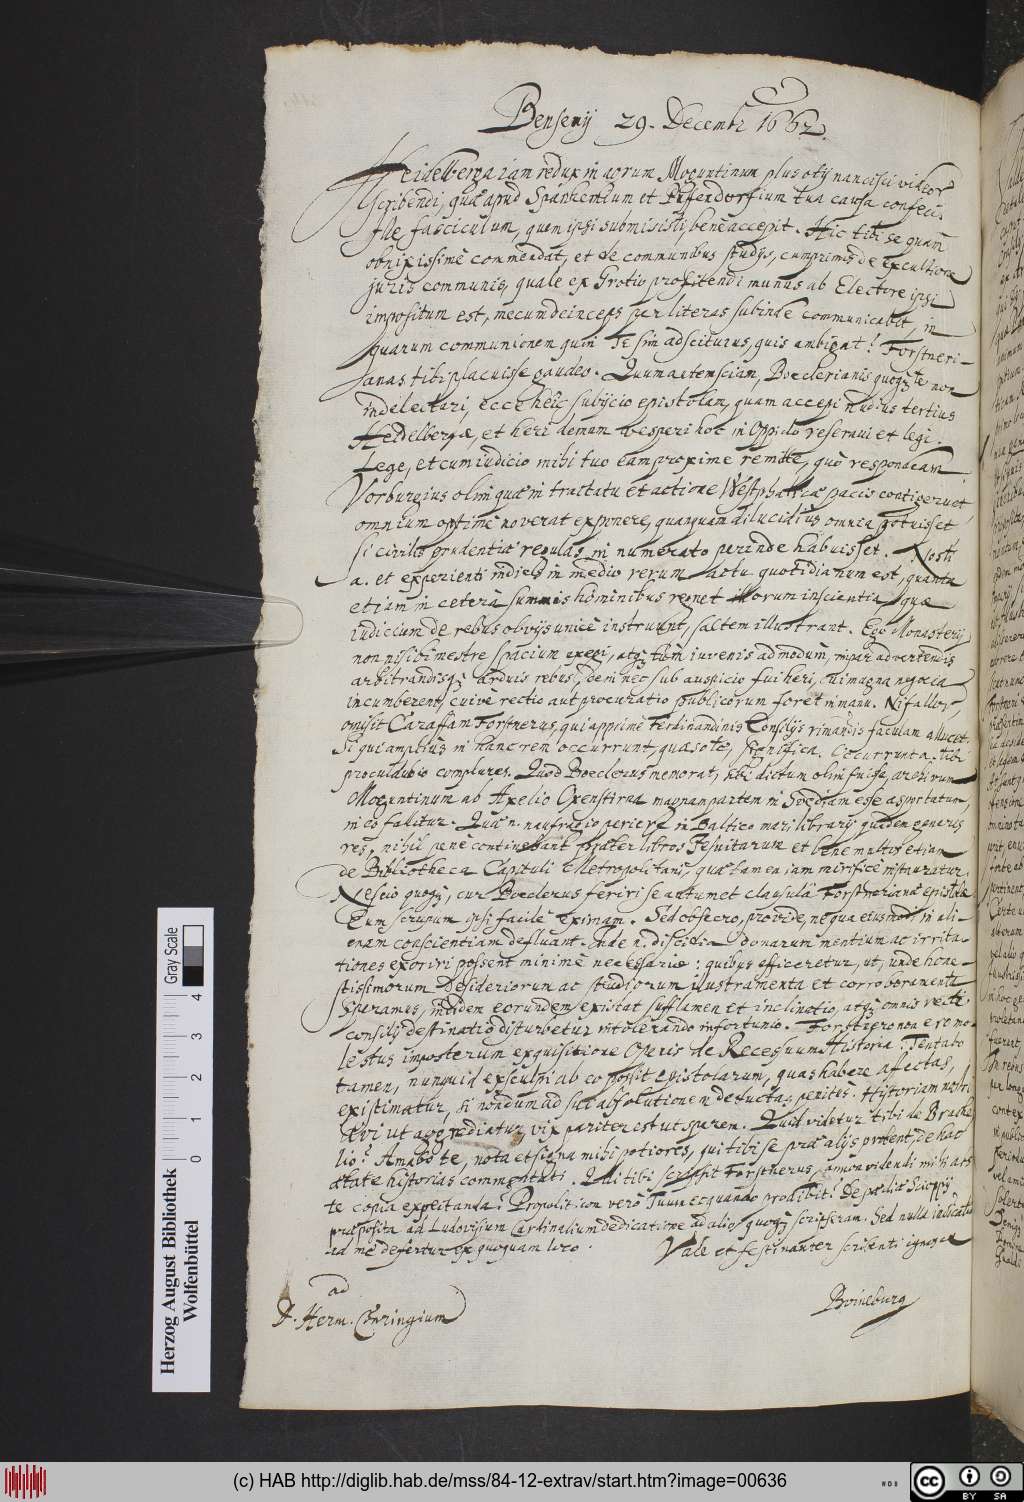 Bensenij 29. Decembr 1662.
Heidelberga iam redux in forum Moguntinum plus otij nancisci videor
scribendi, quã apud Spanhemium et Puffendorfium tua causa confeci.
Ille fasciculum, quem ipsi submisisti, benè accepit. Hic tibi se quam
obnixissimè commendat, et de communibus studijs, cumprimis de excultione
juris communis, quale ex Grotio profitendi munus ab Electore ipsi
impositum est, mecum deinceps per literas subinde communicabit, in
quarum communionem quin Te sim adsciturus, quis ambigat? Forstneri-
anas tibi placuisse gaudeo. Quum autem sciam, Boeclerianis quoq; te non
indelectari, ecce heic subijcio epistolam, quam accepi nudius tertius
Heidelbergæ, et heri demum vesperi hoc in Oppido reseravi et legi.
Lege, et cum iudicio mihi tuo eam proxime remitte, quò respondeam.
Vorburgius olim quæ in tractatu et actione Westphalicæ pacis contigerunt,
omnium optimè noverat exponere, quanquam dilucidius omnia potuisset
si civilis prudentiæ regulas in numerato perinde habuisset. Nosti
a. et experienti indies in medio rerum actu quotidianum est, quanta
etiam in cetera summis hominibus regnet illorum inscientia, quæ
iudicium de rebus obvijs unicè instruunt, saltem illustrant. Ego Monasterij
non nisi bimestre spacium exegi, atq; tum iuvenis admodum, impar advertendis
arbitrandisq; arduis rebus; dein nec sub auspicio fui heri, cui magna negocia
incumberent, cuive rectio aut procuratio publicorum foret in manu. Ni fallor,
omisit Carafam Forstnerus, qui apprimè Ferdinandinis Consilijs rimandis faculam allucet.
Si qui amplius in hanc rem occurrunt, quæso te, significa. Occurrunt a. tibi
proculdubio complures. Quod Boeclerus memorat, sibi dictum olim fuisse, archivum
Moguntinum ab Axelio Oxenstirna magnam partem in Svediam esse asportatum,
in eo fallitur. Quæ n. naufragio periere in Baltico mari librarij quidem generis
res, nihil penè continebant præter libros Jesuitarum et bene multos etiam
de Bibliotheca Capituli Metropolitani, quæ tamen iam mirificè instauratur.
Nescio quoq;, cur Boeclerus feriri se autumet clausulâ Forstnerianæ epistolæ.
Eum scrupum ipsi facilè eximam. Sed obsecro, provide, ne qua eiusmodi in ali-
enam conscientiam defluant. Inde n. discidia bonarum mentium ac irrita-
tiones exoriri possent minimè necessariæ: quibus efficeretur, ut, unde hone-
stissimorum desideriorum ac studiorum illustramenta et corroboramenta
speramus, indidem eorundem existat sufflamen et inclinatio, atq; omnis recti
consilij destinatio disturbetur intolerando infortunio. Forstnero non ero mo-
lestus imposterum exquisitione Operis de Recessuum Historia. Tentabo
tamen, nunquid exsculpi ab eo possit epistolarum, quas habere affectas,
existimatur, si nondum ad sui absolutionem deductas penitès. Historiam nostri
ævi ut aggrediatur, vix pariter est ut sperem. Quid videtur tibi de Brache-
lio? Amabo te, nota et signa mihi potiores, qui tibi se præ alijs probent, de hac
ætate historias commentati. Quæ tibi scripsit Forstnerus, omnon videndi mihi abs
te copia expectanda? Propolit.icon verò Tuum ecquando prodibit? De pædiâ Scioppij
præposita ad Ludovisium Cardinalium dedicatione ad aliq quoq; scripseram. Sed nulla indicatio
ad me defertur ex quoquam loco. Vale et festinanter scribenti ignosce
Boineburg
ad
D. Herm. Conringium
Herzog August Bibliothek
Wolfenbüttel
Gray Scale
0 1 2 3 4
(c) HAB http://diglib.hab.de/mss/84-12-extrav/start.htm?image=00636
cc BY SA